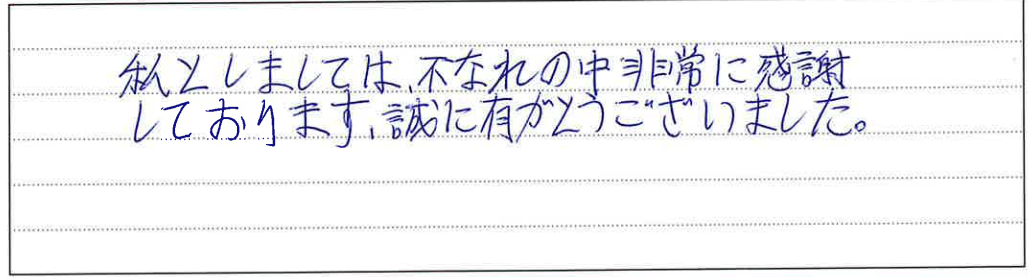 私としましては、不なれの中非常に感謝
しております、誠に有がとうございました。